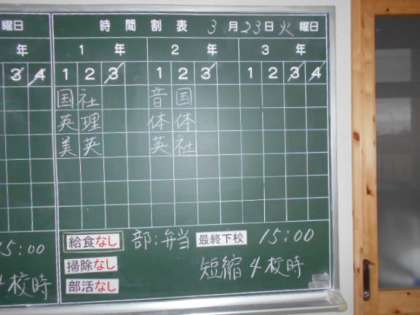 曜日 時間割表 3月23日火曜日
年 1年 2年 3年
3 4 1 2 3 1 2 3 1 2 3 4
国 社 音 国
英 理 体 体
美 英 英 社
15:00 給食なし 部:弁当 最終下校 15:00
4校時 掃除なし 短縮4校時
部活なし